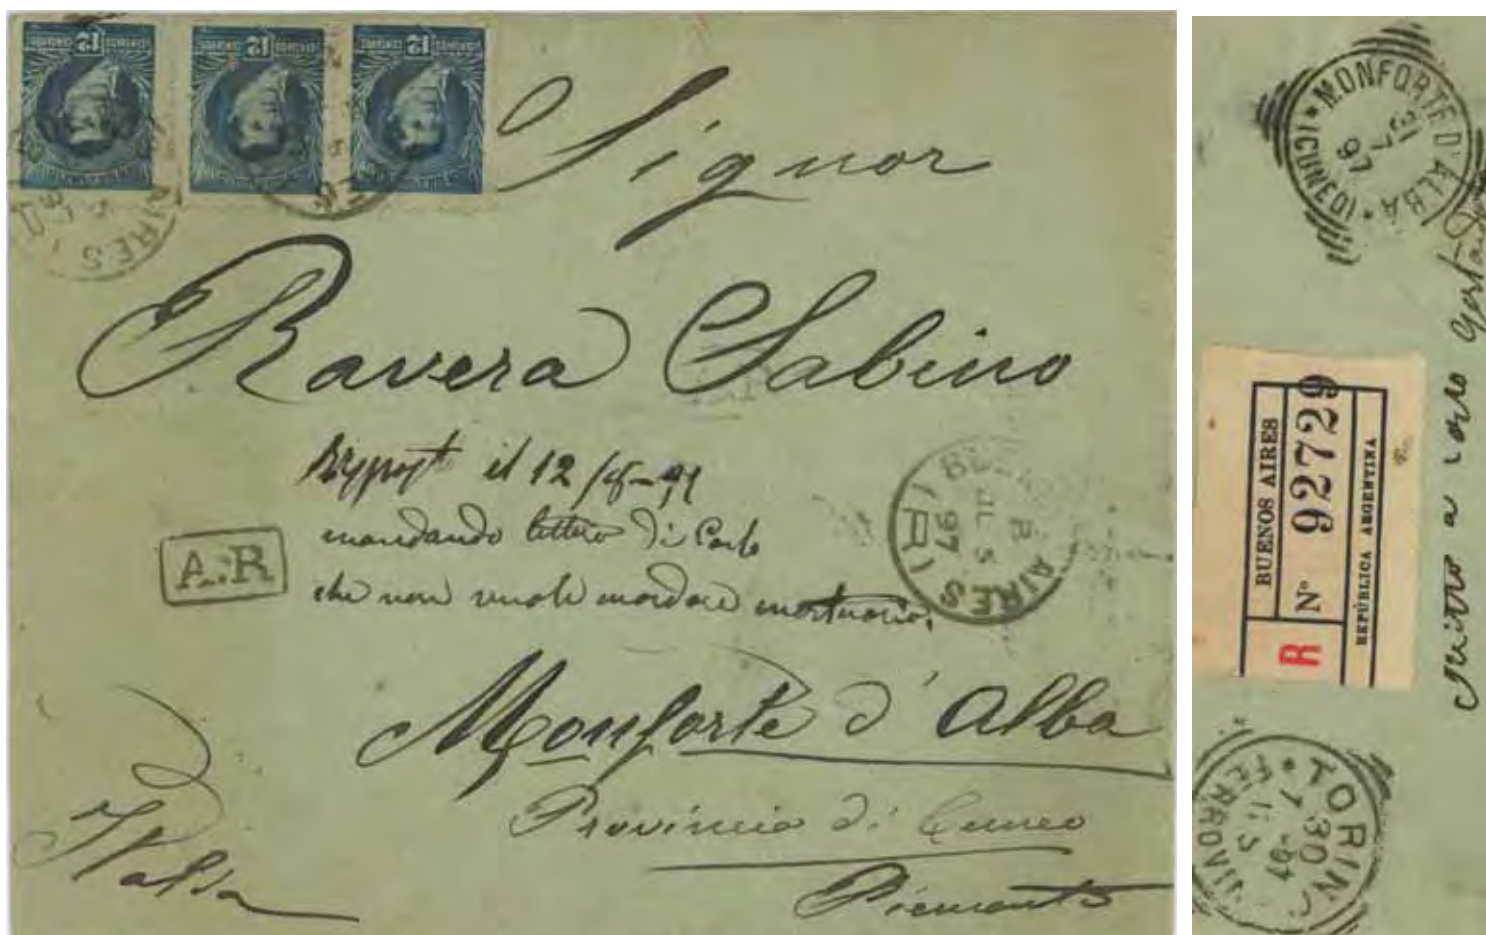 12
12
12
CENTAVOS
AIRES
Signor
Ravera Sabino
il 12/8-97
mandando lettera di Carlo
che non vuole mandare mortuario.
A.R
BUENOS AIRES
R
JL 5
97
Monforte d'Alba
Provincia di Cuneo
Piemonte
Italia
MONFORTE D'ALBA (CUNEO)
31
7
97
BUENOS AIRES
R
Nº 92729
REPÚBLICA ARGENTINA
a
TORINO FERROVIA
30
7
97